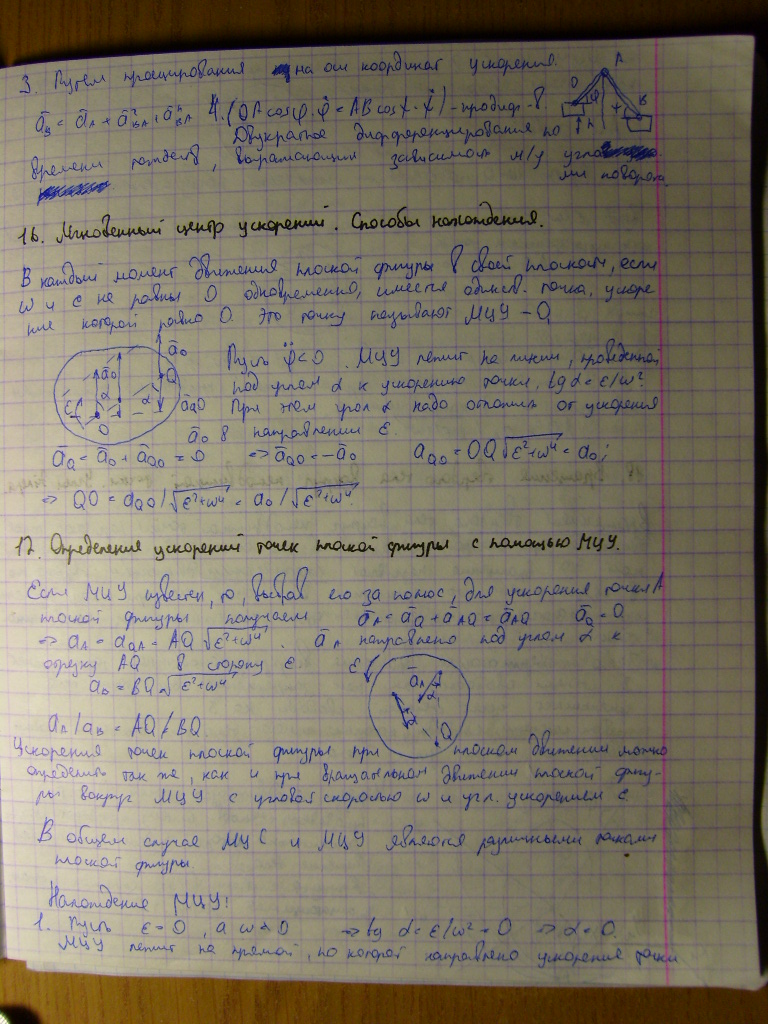 3. Путем проецирования на оси координат ускорения.
āB = āA + āᵗBA + āⁿBA 4. (OA cosφ·φ̇ = AB cosψ·ψ̇) - продиф-в.
Двукратное дифференцирование по
времени тождеств, выражающих зависимость м/у угла
ми поворота.
O A B φ ψ h
16. Мгновенный центр ускорений. Способы нахождения.
В каждый момент движения плоской фигуры в своей плоскости, если
ω и ε не равны 0 одновременно, имеется единств. точка, ускоре
ние которой равно 0. Эту точку называют МЦУ – Q.
Пусть φ̈<0. МЦУ лежит на линии, проведенной
под углом α к ускорению точки, tg α = ε/ω².
При этом угол α надо отложить от ускорения
ā₀ в направлении ε.
ε ā₀ α O ā₀ Q α āQO
āQ = ā₀ + āQO = 0 ⇒ āQO = -ā₀ aQO = OQ√ε²+ω⁴ = a₀;
⇒ QO = aQO/√ε²+ω⁴ = a₀/√ε²+ω⁴
17. Определения ускорений точек плоской фигуры с помощью МЦУ.
Если МЦУ известен, то, выбрав его за полюс, для ускорения точки A
плоской фигуры получаем āA = āQ + āAQ = āAQ āQ = 0
⇒ aA = aQA = AQ√ε²+ω⁴. āA направлено под углом α к
отрезку AQ в сторону ε
aB = BQ√ε²+ω⁴
ε āA α α Q
aA/aB = AQ/BQ
Ускорения точек плоской фигуры при плоском движении можно
определить так же, как и при вращательном движении плоской фигу-
ры вокруг МЦУ с угловой скоростью ω и угл. ускорением ε.
В общем случае МЦС и МЦУ являются различными точками
плоской фигуры.
Нахождение МЦУ:
1. Пусть ε = 0, а ω ≠ 0 ⇒ tg α = ε/ω² = 0 ⇒ α = 0.
МЦУ лежит на прямой, по которой направлено ускорение точки